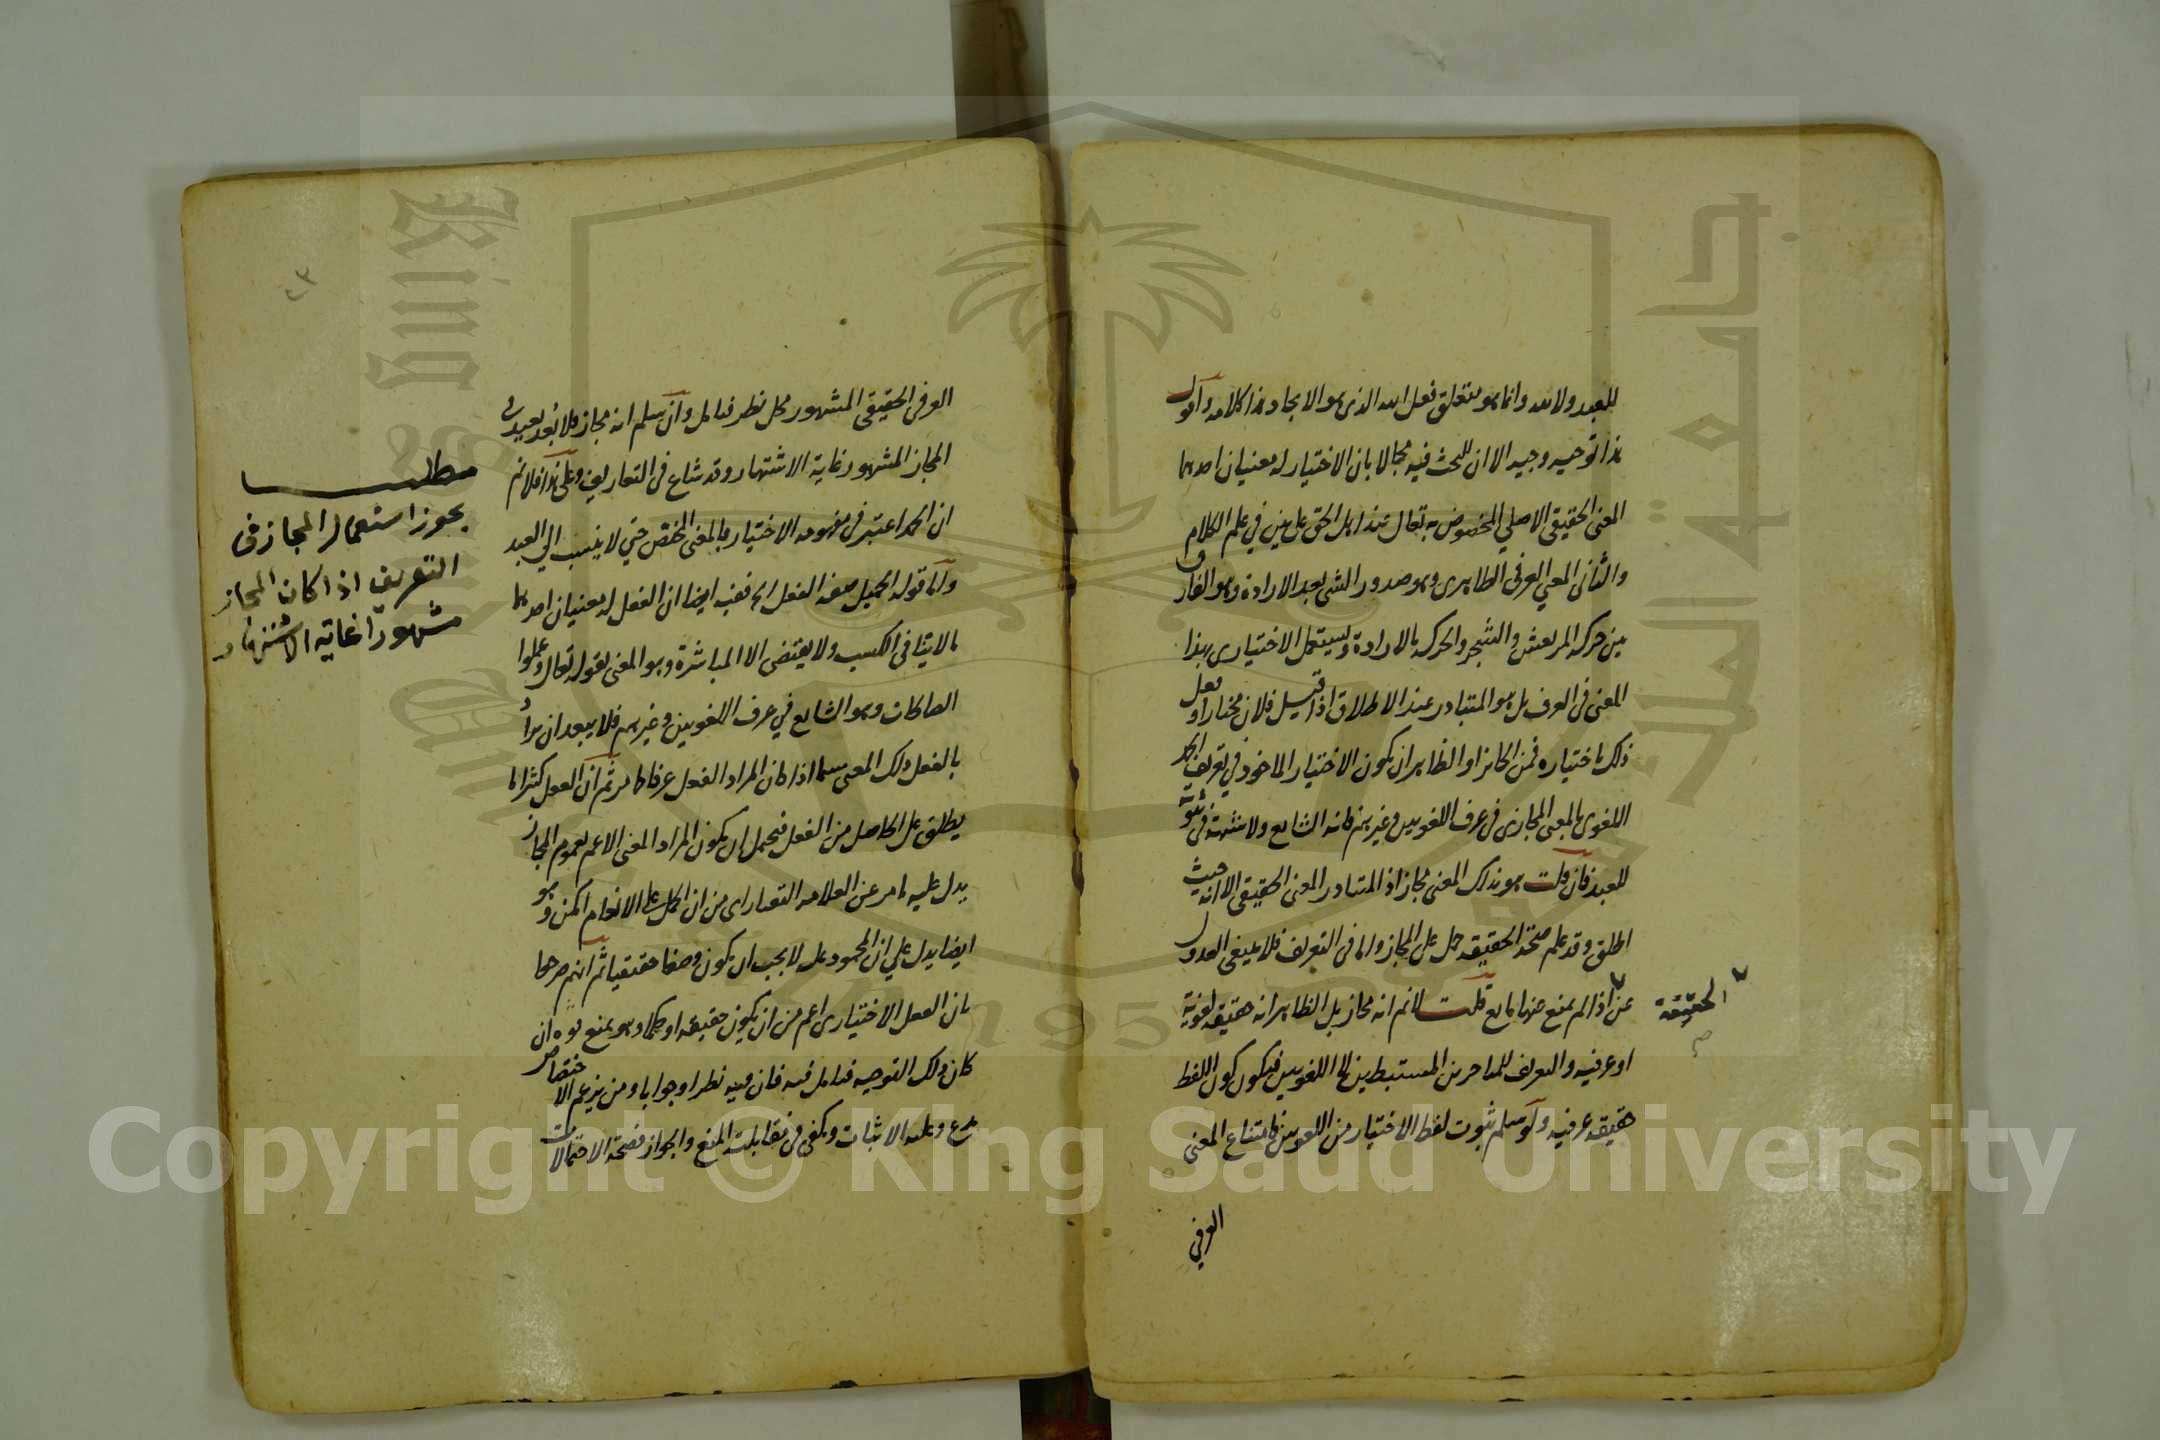 للعبد ولابد وانما هو متعلق فعل الله الذي هو الايجاد هذا كلامه واقول
هذا توجيه وجيه الا ان للبحث فيه مجالا بان الاختيار له معنيان احدهما
المعنى الحقيقي الاصلي المخصوص به تعالى عند اهل الحق على ما بين في علم الكلام
والثاني المعنى العرفي الظاهري وهو صدور الشي بعد الارادة وهو الفارق
بين حركة المرتعش والشجر والحركة بالارادة ويستعمل الاختياري بهذا
المعنى في العرف بل هو المتبادر عند الاطلاق اذا قيل فلان مختار او فعل
ذلك باختياره فمن الجائز او الظاهر ان يكون الاختيار الماخوذ في تعريف الحمد
اللغوي بالمعنى المجازي في عرف اللغويين وغيرهم فانه الشايع ولا شبهة في ثبوته
للعبد فان قلت هو بذلك المعنى مجاز اذ المتبادر المعنى الحقيقي الا انه حيث
اطلق وقد علم صحة الحقيقة حمل على المجاز واما في التعريف فلا ينبغي العدول
عن اذا لم يمنع عنها مانع قلت لا نم انه مجاز بل الظاهر انه حقيقة لغوية
الحقيقة
صح
او عرفية والتعريف للمتاخرين المستنبطين كلام اللغويين فيكون كون اللفظ
حقيقة عرفية ولو سلم ثبوت لفظ الاختيار من اللغويين فامتناع المعنى
العرفي
٢٣
العرفي الحقيقي المشهور محل نظر فتامل وان سلم انه مجاز فلا بعد بعيد في
المجاز المشهور غاية الاشتهار وقد شاع في التعاريف وعلى هذا فلا نم
ان الحمد اعتبر في مفهومه الاختيار بالمعنى المختص حتى لا ينسب الى العبد
واما قوله الجميل صفة الفعل الخ ففيه ايضا ان الفعل له معنيان احدهما
ما لا ينافي الكسب ولا يقتضي الا المباشرة وهو المعنى بقوله تعالى وعملوا
الصالحات وهو الشايع في عرف اللغويين وغيرهم فلا يبعد ان يراد
بالفعل ذلك المعنى سيما اذا كان المراد الفعل عرفا كما مر ثم ان الفعل كثيرا ما
يطلق على الحاصل من الفعل فيحمل ان يكون المراد المعنى الاعم بعموم المجاز
يدل عليه ما مر عن العلامة التفتازاني من ان الحمل على الانعام امكن وهو
ايضا يدل على ان المحمود عليه لا يجب ان يكون وصفا حقيقيا ثم انهم صرحوا
بان الفعل الاختياري اعم من ان يكون حقيقة او حكما وهو يمنع قوة ان
كان ذلك التوجيه فتامل فيه فان فيه نظرا وجوابا ومن يزعم الاختصاص
مدع وعليه الاثبات ويكفي في مقابلته المنع والجواز فصحة الاحتمالات
مطلب
يجوز استعمال المجاز في
التعريف اذا كان المجاز
مشهورا غاية الاشتهار
Copyright © King Saud University
King Saud University
جامعة الملك سعود
1957